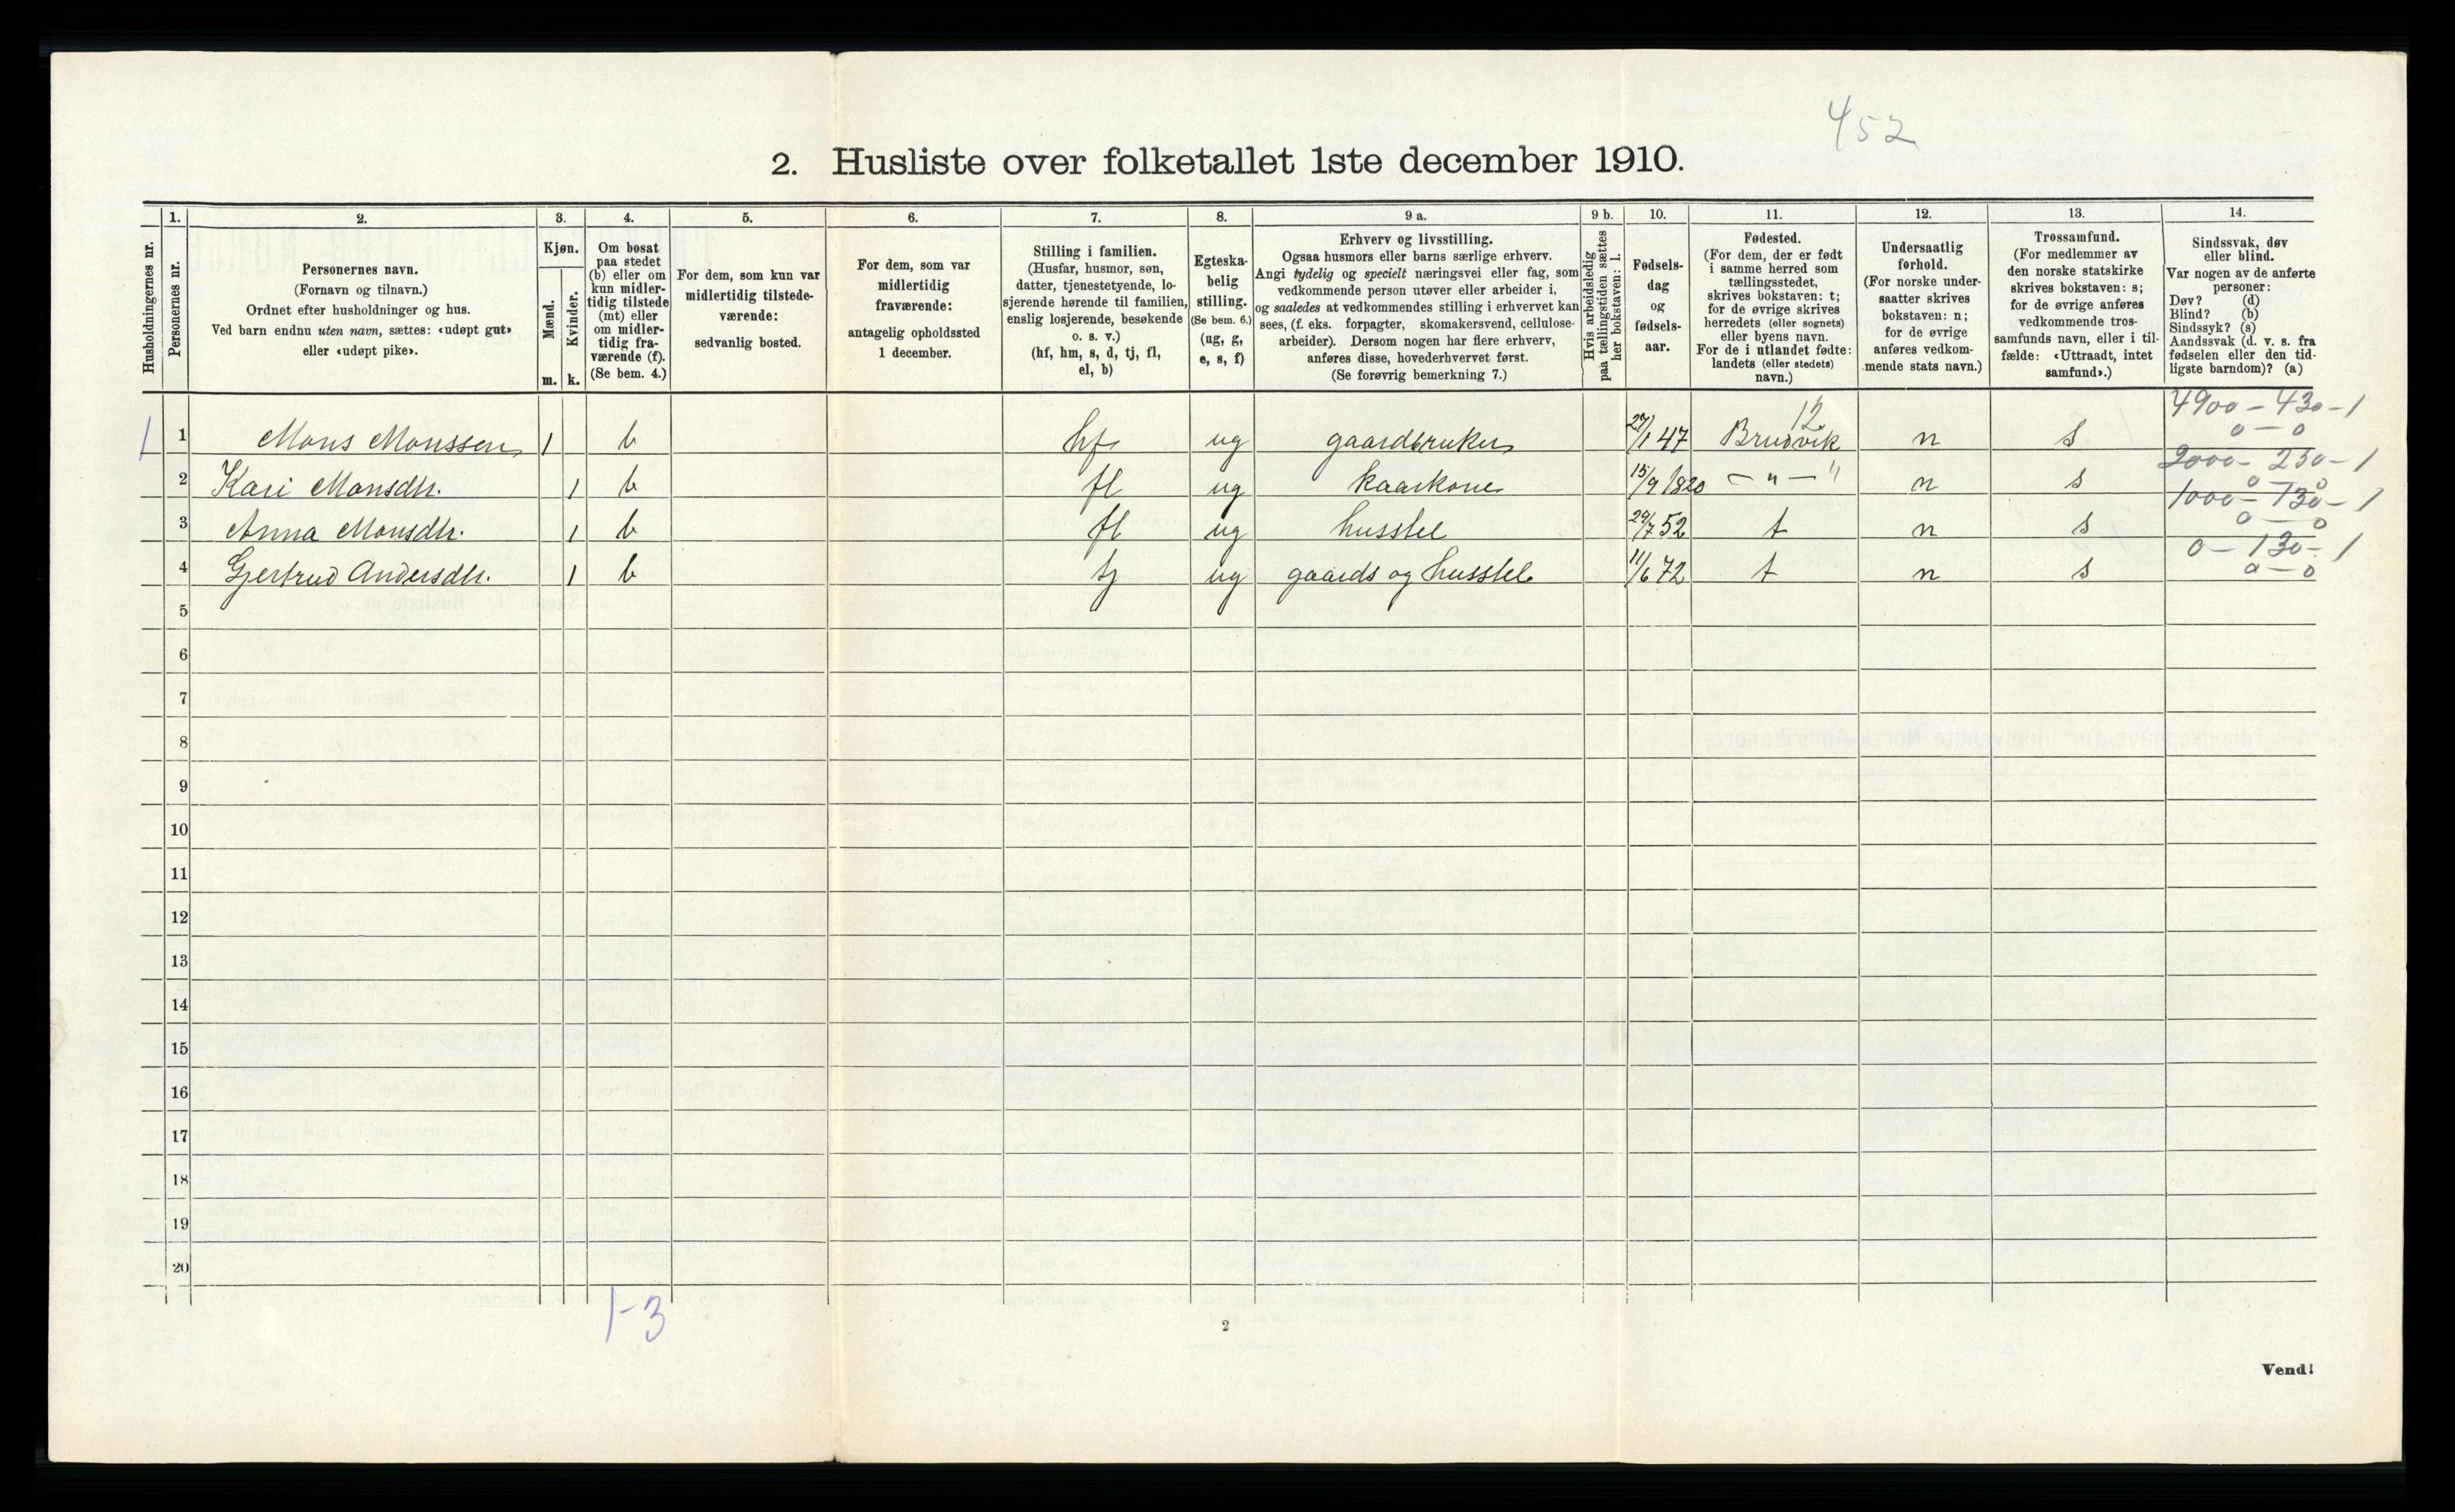 452
2. Husliste over folketallet 1ste december 1910.
1. 2. 3. 4. 5. 6. 7. 8. 9 a. 9 b. 10. 11. 12. 13. 14.
Husholdningernes nr.
Personernes nr.
Personernes navn.
(Fornavn og tilnavn.)
Ordnet efter husholdninger og hus.
Ved barn endnu uten navn, sættes: «udøpt gut»
eller «udøpt pike».
Kjøn.
Mænd.
Kvinder.
m. k.
Om bosat
paa stedet
(b) eller om
kun midler-
tidig tilstede
(mt) eller
om midler-
tidig fra-
værende (f).
(Se bem. 4.)
For dem, som kun var
midlertidig tilstede-
værende:
sedvanlig bosted.
For dem, som var
midlertidig
fraværende:
antagelig opholdssted
1 december.
Stilling i familien.
(Husfar, husmor, søn,
datter, tjenestetyende, lo-
sjerende hørende til familien,
enslig losjerende, besøkende
o. s. v.)
(hf, hm, s, d, tj, fl,
el, b)
Egteska-
belig
stilling.
(Se bem. 6.)
(ug, g,
e, s, f)
Erhverv og livsstilling.
Ogsaa husmors eller barns særlige erhverv.
Angi tydelig og specielt næringsvei eller fag, som
vedkommende person utøver eller arbeider i,
og saaledes at vedkommendes stilling i erhvervet kan
sees, (f. eks. forpagter, skomakersvend, cellulose-
arbeider). Dersom nogen har flere erhverv,
anføres disse, hovederhvervet først.
(Se forøvrig bemerkning 7.)
Hvis arbeidsledig
paa tællingstiden sættes
her bokstaven: l.
Fødsels-
dag
og
fødsels-
aar.
Fødested.
(For dem, der er født
i samme herred som
tællingsstedet,
skrives bokstaven: t;
for de øvrige skrives
herredets (eller sognets)
eller byens navn.
For de i utlandet fødte:
landets (eller stedets)
navn.)
Undersaatlig
forhold.
(For norske under-
saatter skrives
bokstaven: n;
for de øvrige
anføres vedkom-
mende stats navn.)
Trossamfund.
(For medlemmer av
den norske statskirke
skrives bokstaven: s;
for de øvrige anføres
vedkommende tros-
samfunds navn, eller i til-
fælde: «Uttraadt, intet
samfund».)
Sindssvak, døv
eller blind.
Var nogen av de anførte
personer:
Døv? (d)
Blind? (b)
Sindssyk? (s)
Aandssvak (d. v. s. fra
fødselen eller den tid-
ligste barndom)? (a)
12 4900 – 430 – 1
1 1 Mons Monssen 1 b hf ug gaardbruker 27/1 47 Brudvik n s 0 – 0
2000 – 230 – 1
2 Kari Monsdtr. 1 b fl ug kaarkone 15/9 1820 – " – " n s 0 – 0
1000 – 130 – 1
3 Anna Monsdtr. 1 b fl ug husstel 29/7 52 t n s 0 – 0
0 – 130 – 1
4 Gjertrud Andersdtr. 1 b tj ug gaards og husstel 11/6 72 t n s 0 – 0
5
6
7
8
9
10
11
12
13
14
15
16
17
18
19
20
1-3
2
Vend!